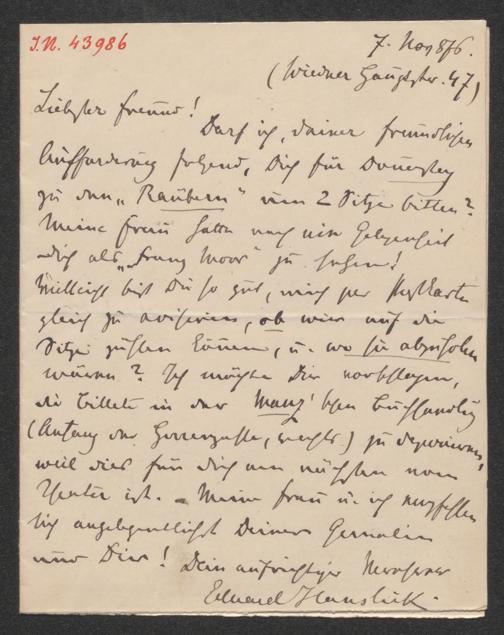 I.N. 43986
7. Nov 876.
(Wiedner Hauptstr. 47)
Liebster Freund!
Darf ich, deiner freundlichen
Aufforderung folgend, Dich für Donnerstag
zu den „Räubern" um 2 Sitze bitten?
Meine Frau hatte noch nie Gelegenheit
Dich als „Franz Moor" zu sehen!
Vielleicht bist Du so gut, mich per Postkarte
gleich zu avisieren, ob wir auf die
Sitze zählen können, u. wo sie abzuholen
wären? Ich möchte Dir vorschlagen,
die Billete in der Manz'schen Buchhandlung
(Anfang der Herrengasse, rechts) zu deponieren,
weil dies für Dich am nächsten vom
Theater ist. – Meine Frau u. ich empfehlen
uns angelegentlichst Deiner Gemalin
und Dir! Dein aufrichtiger Verehrer
Eduard Hanslick.